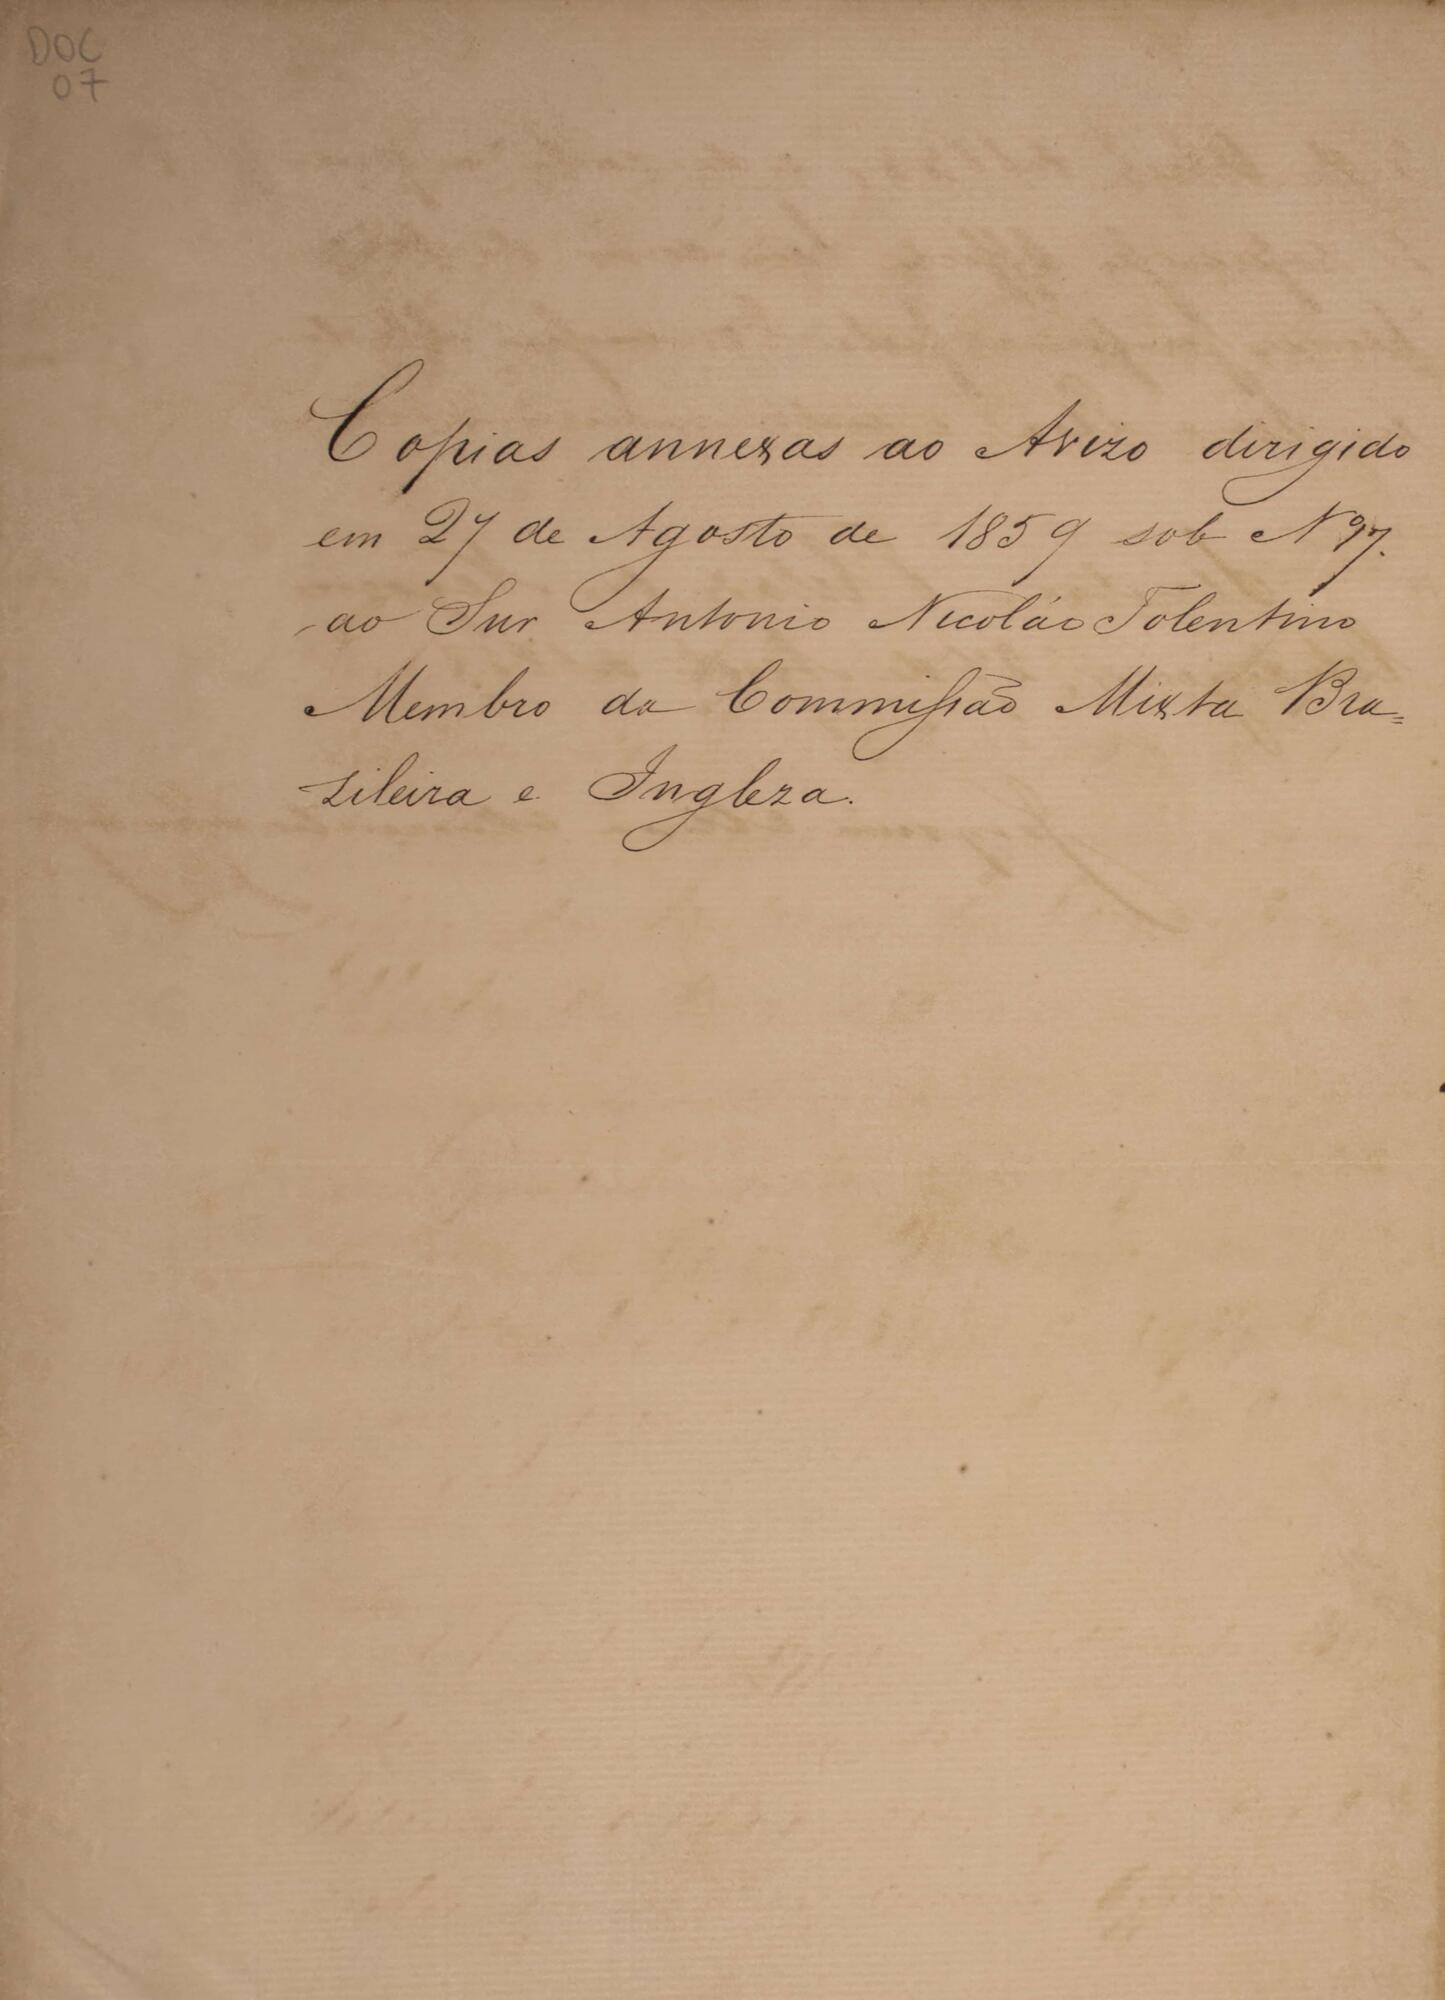 DOC
07
Copias annexas ao Avizo dirigido
em 27 de Agosto de 1859 sob Nº 7.
ao Snr Antonio Nicoláo Tolentino
Membro da Commissão Mixta Bra=
zileira e Ingleza.